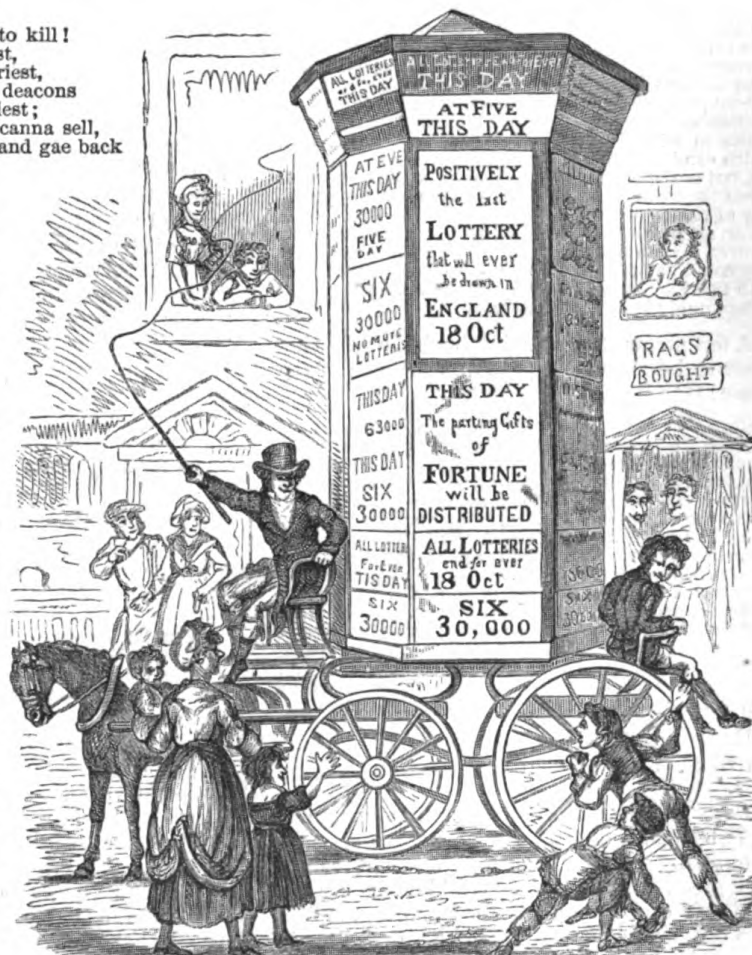 to kill!
st,
riest,
deacons
lest;
canna sell,
and gae back
ALL LOTTERIES
end for ever
THIS DAY
THIS DAY
AT FIVE
THIS DAY
AT EVE
THIS DAY
30000
FIVE
DAY
SIX
30000
NO MORE
LOTTERIS
THIS DAY
63000
THIS DAY
SIX
30000
ALL LOTTERI
For Ever
TIS DAY
SIX
30000
POSITIVELY
the last
LOTTERY
that will ever
be drawn in
ENGLAND
18 Oct
THIS DAY
The parting Gifts
of
FORTUNE
will be
DISTRIBUTED
ALL LOTTERIES
end for ever
18 Oct
SIX
30,000
SIX
RAGS
BOUGHT